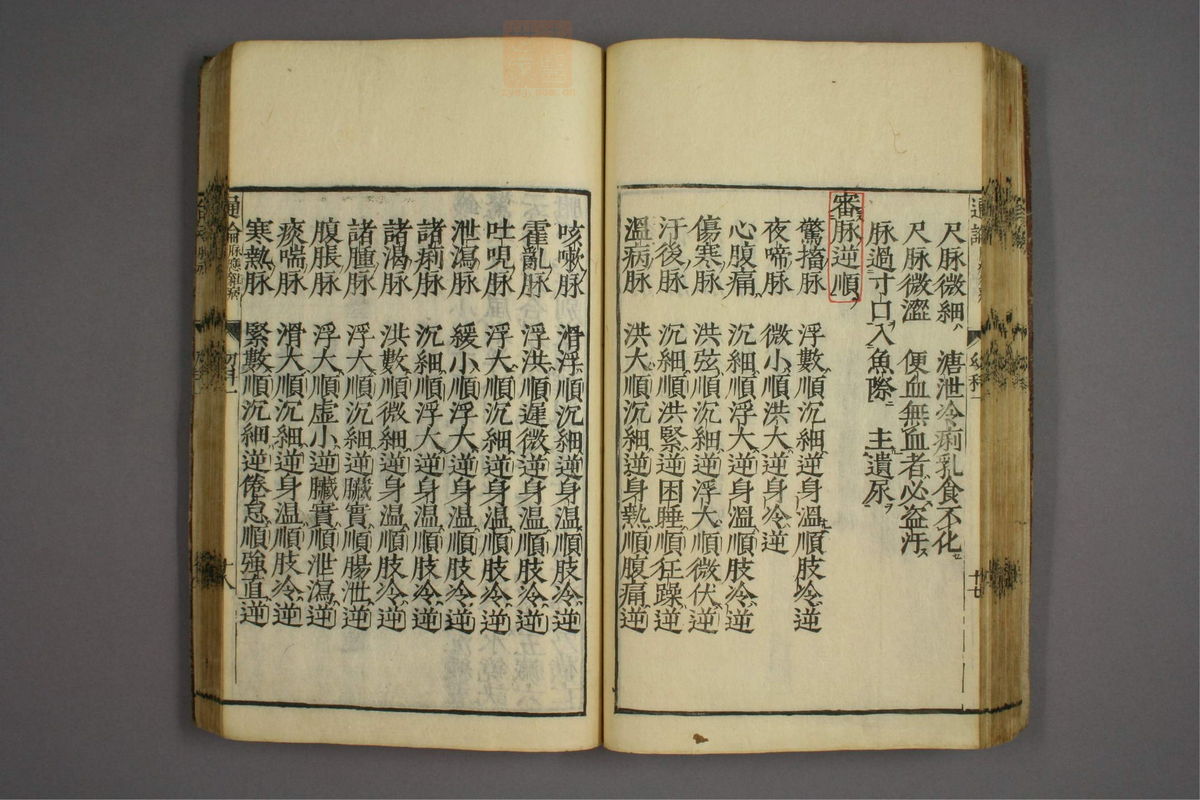 尺脉微細 溏泄冷痢乳食不化
尺脉微澀 便血無血者必盗汗
脉過寸口入魚際 主遺尿
審脉逆順
驚搐脉 浮數順沉細逆身溫順肢冷逆
夜啼脉 微小順洪大逆身冷逆
心腹痛 沉細順浮大逆身溫順肢冷逆
傷寒脉 洪弦順沉細逆浮大順微伏逆
汗後脉 沉細順洪緊逆困睡順狂躁逆
溫病脉 洪大順沉細逆身熱順腹痛逆
咳嗽脉 滑浮順沉細逆身温順肢冷逆
霍亂脉 浮洪順遲微逆身温順肢冷逆
吐哯脉 浮大順沉細逆身温順肢冷逆
泄瀉脉 緩小順浮大逆身温順肢冷逆
諸痢脉 沉細順浮大逆身温順肢冷逆
諸渴脉 洪數順微細逆身温順肢冷逆
諸腫脉 浮大順沉細逆臟實順腸泄逆
腹脹脉 浮大順虚小逆臟實順泄瀉逆
痰喘脉 滑大順沉細逆身温順肢冷逆
寒熱脉 緊數順沉細逆倦怠順強直逆
通論
十八